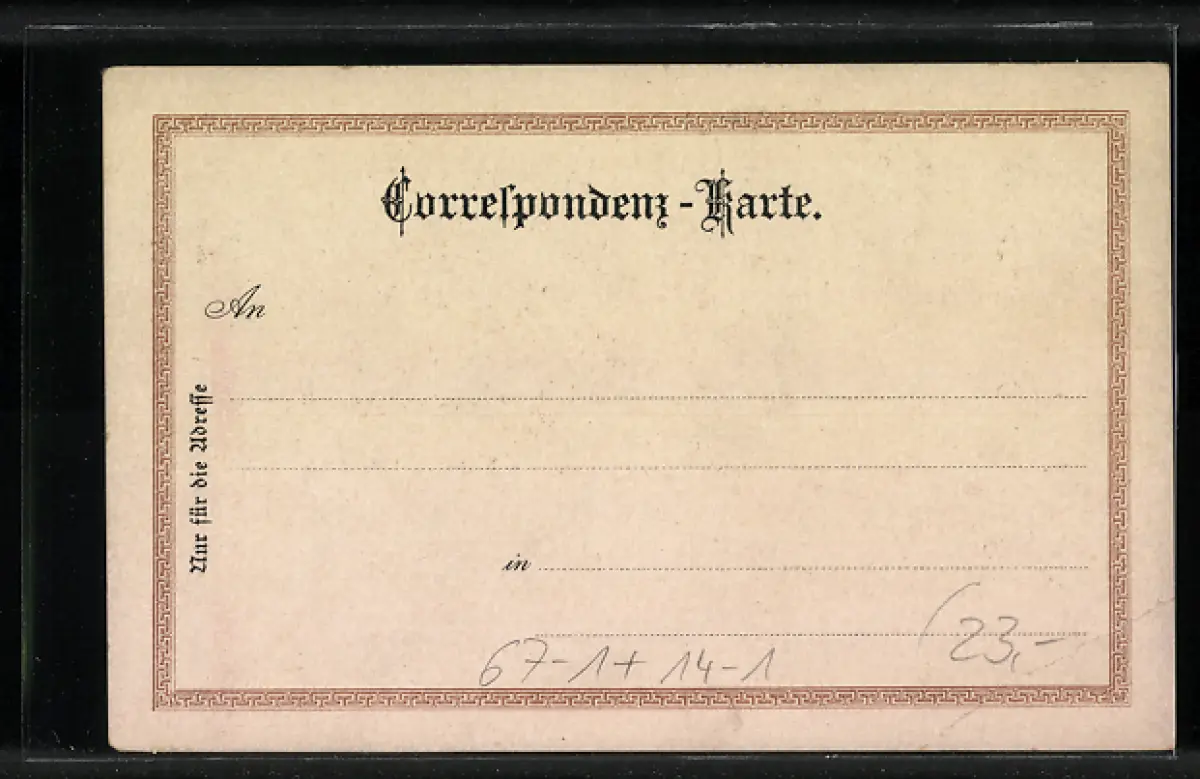 Correſpondenz-Karte.
An
Nur für die Adreſſe
in
67-1+14-1
(23,-